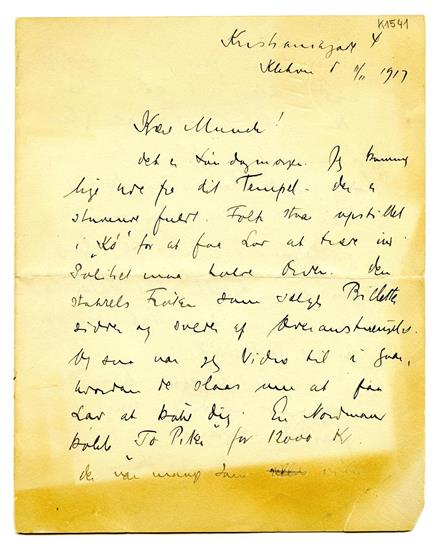 K1541
Kristianiagade 4
Kbhvn Ø 11/11 1917
Kære Munch!
Det er Søndagmorgen. Jeg kommer
lige ude fra dit Tempel. Der er
stuvende fuldt. Folk staar opstillet
i "Kø" for at faa Lov at træde ind
Politiet maa holde Orden. Den
stakkels Frøken som sælger Billetter
sidder og sveder af Overanstrengelse.
Og saa var jeg Vidne til i Gaar,
hvordan de slaas um at faa
Lov at købe dig. En Nordmann
købte "To Piker" for 12000 Kr.
der var mange som